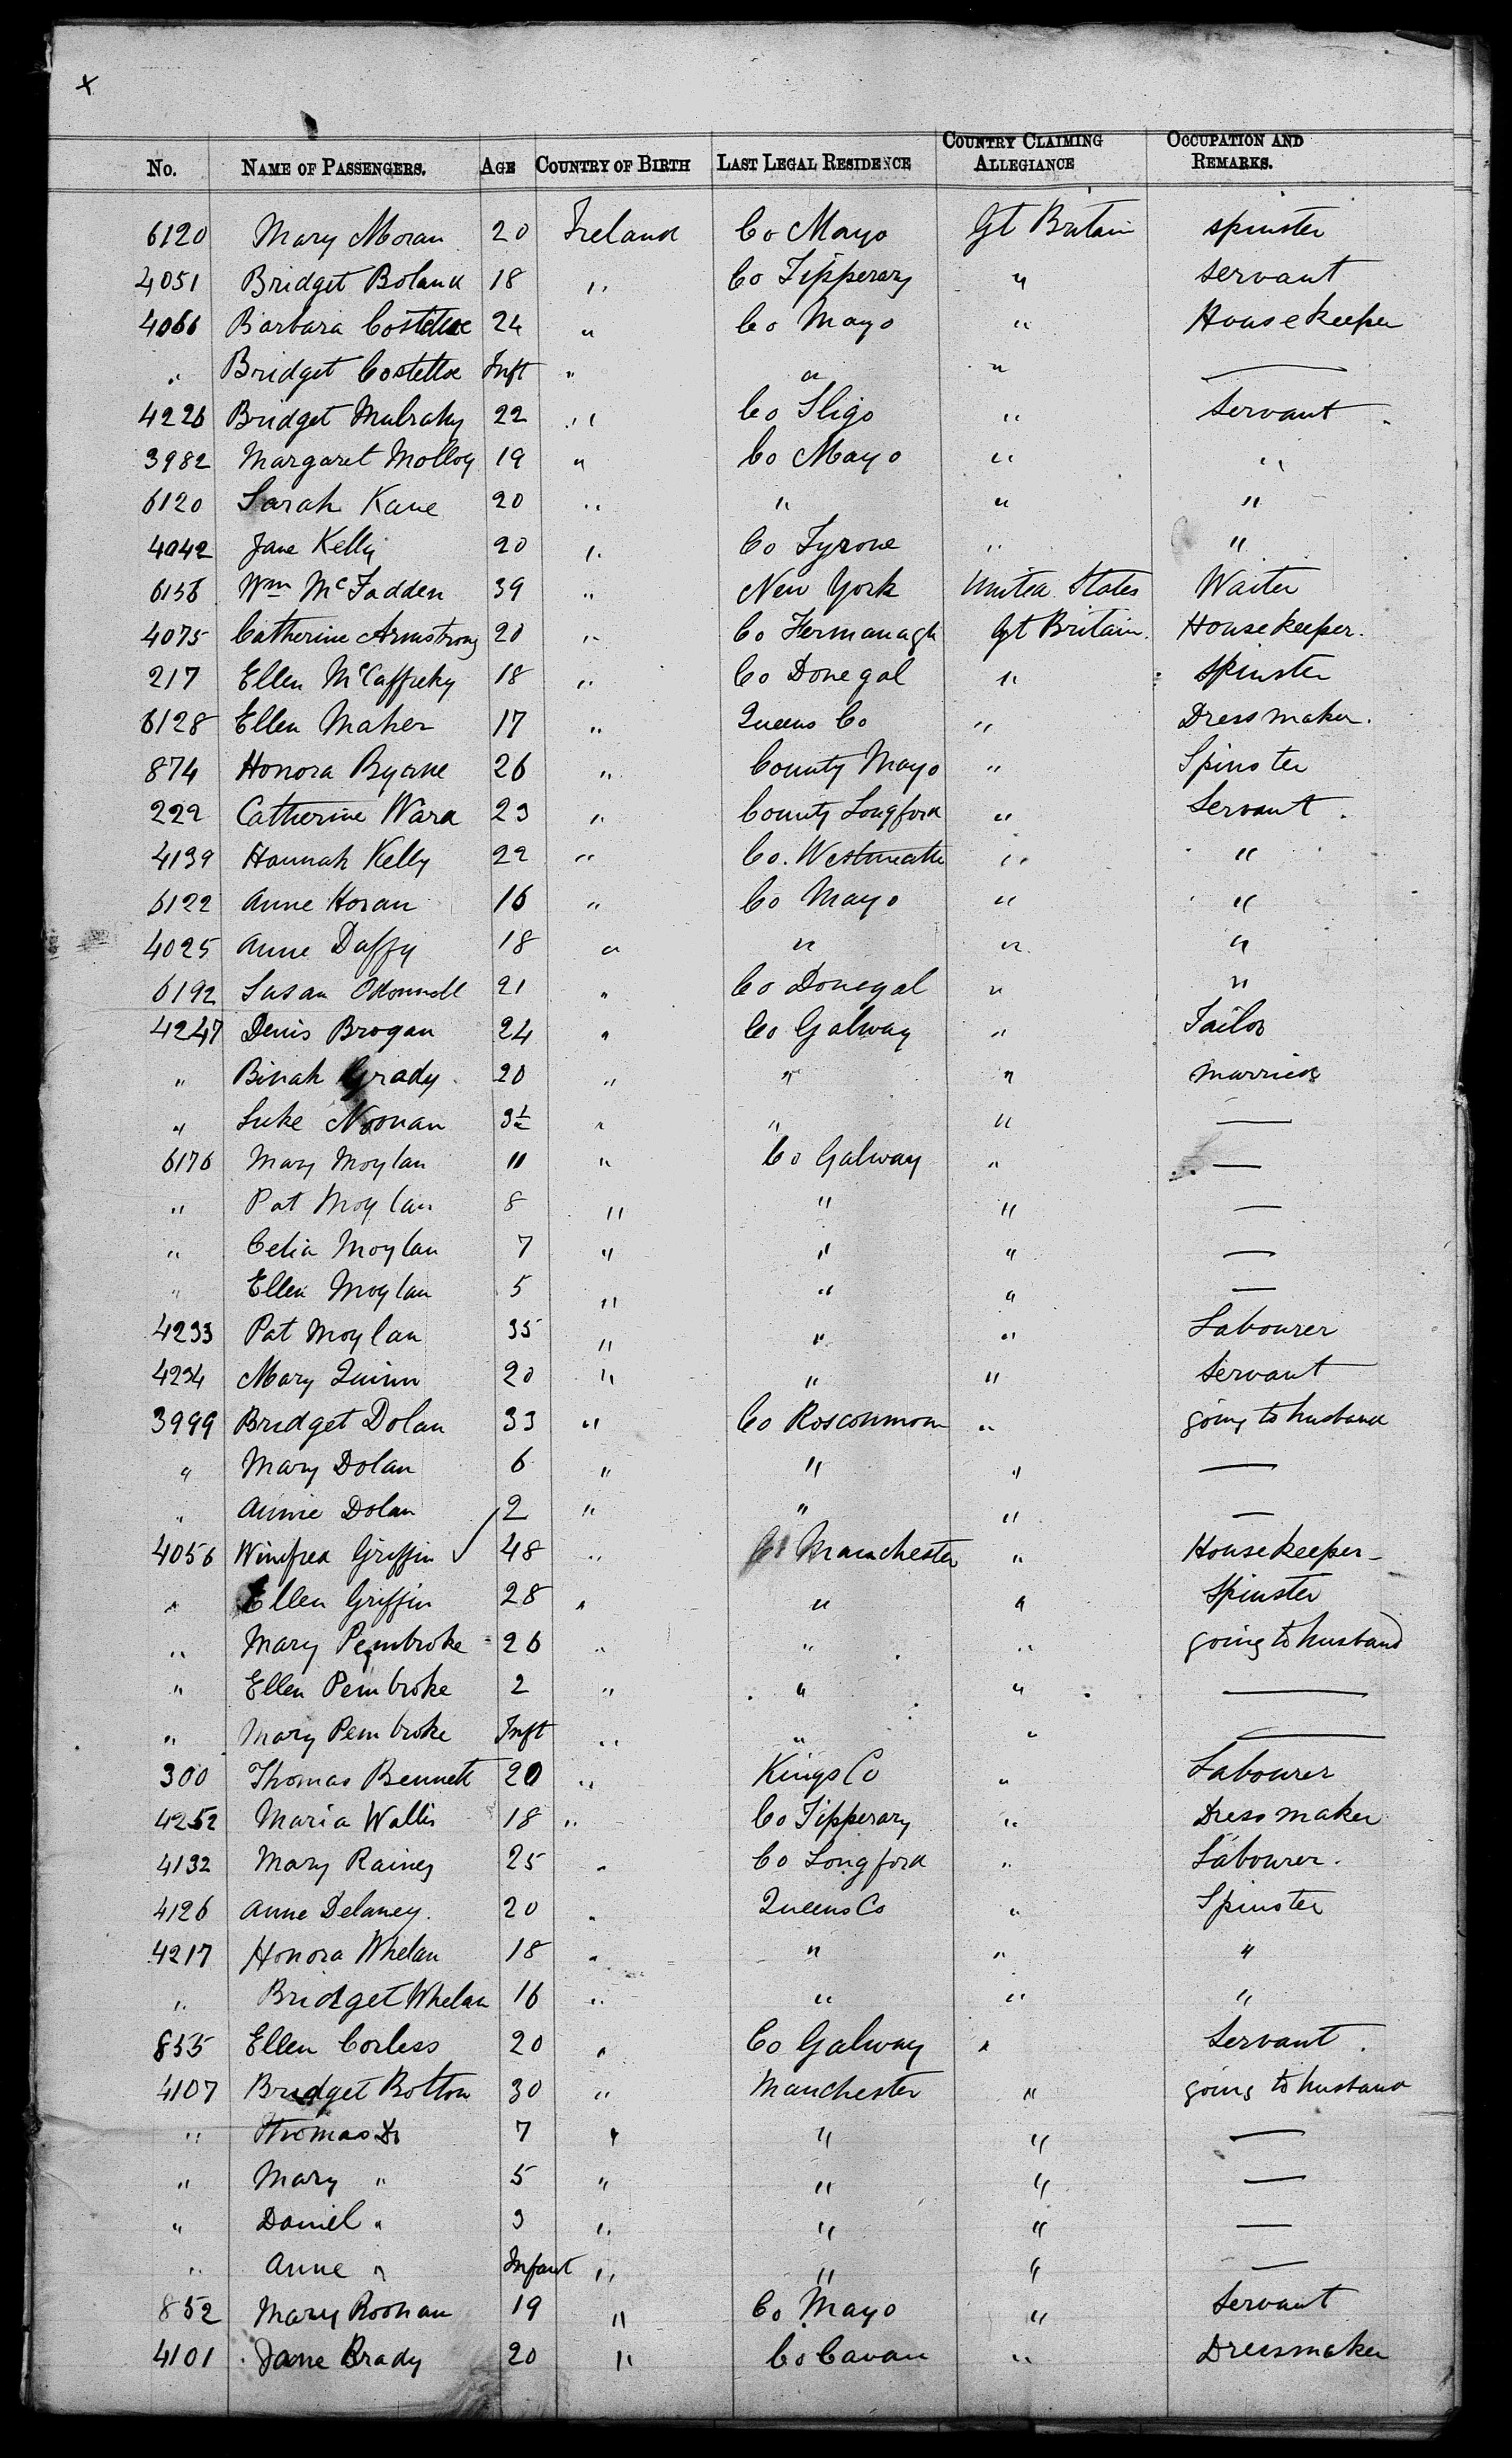 x
No. NAME OF PASSENGERS. AGE COUNTRY OF BIRTH LAST LEGAL RESIDENCE COUNTRY CLAIMING ALLEGIANCE OCCUPATION AND REMARKS.
6120 Mary Moran 20 Ireland Co Mayo Gt Britain spinster
4051 Bridget Boland 18 " Co Tipperary " servant
4066 Barbara Costelloe 24 " Co Mayo " Housekeeper
" Bridget Costelloe Inft " " " —
4226 Bridget Mulrahy 22 " Co Sligo " Servant
3982 Margaret Molloy 19 " Co Mayo " "
6120 Sarah Kane 20 " " " "
4042 Jane Kelly 20 " Co Tyrone " "
6156 Wm McFadden 39 " New York United States Waiter
4075 Catherine Armstrong 20 " Co Fermanagh Gt Britain. Housekeeper.
217 Ellen McCaffreky 18 " Co Donegal " Spinster
6128 Ellen Maher 17 " Queens Co " Dressmaker.
874 Honora Byrne 26 " County Mayo " Spinster
222 Catherine Ward 23 " County Longford " Servant.
4139 Hannah Kelly 22 " Co. Westmeath " "
6122 Anne Horan 16 " Co Mayo " "
4025 Anne Duffy 18 " " " "
6192 Susan OConnell 21 " Co Donegal " "
4247 Denis Brogan 24 " Co Galway " Tailor
" Binah Grady 20 " " " married
" Luke Noonan 3½ " " " —
6176 Mary Moylan 11 " Co Galway " —
" Pat Moylan 8 " " " —
" Celia Moylan 7 " " " —
" Ellen Moylan 5 " " " —
4233 Pat Moylan 35 " " " Labourer
4234 Mary Quinn 20 " " " Servant
3999 Bridget Dolan 33 " Co Roscommon " going to husband
" Mary Dolan 6 " " " —
" Annie Dolan 2 " " " —
4056 Winifred Griffin ✓ 48 " Manchester " Housekeeper
" Ellen Griffin 28 " " " Spinster
" Mary Pembroke 26 " " " going to husband
" Ellen Pembroke 2 " " " —
" Mary Pembroke Inft " " " —
300 Thomas Bennett 20 " Kings Co " Labourer
4252 Maria Wallis 18 " Co Tipperary " Dressmaker
4132 Mary Rainey 25 " Co Longford " Labourer.
4126 Anne Delaney. 20 " Queens Co " Spinster
4217 Honora Whelan 18 " " " "
" Bridget Whelan 16 " " " "
835 Ellen Corless 20 " Co Galway " Servant.
4107 Bridget Bolton 30 " Manchester " going to husband
" Thomas Do 7 " " " —
" Mary " 5 " " " —
" Daniel " 3 " " " —
" Anne " Infant " " " —
852 Mary Roonan 19 " Co Mayo " Servant
4101 Jane Brady 20 " Co Cavan " Dressmaker